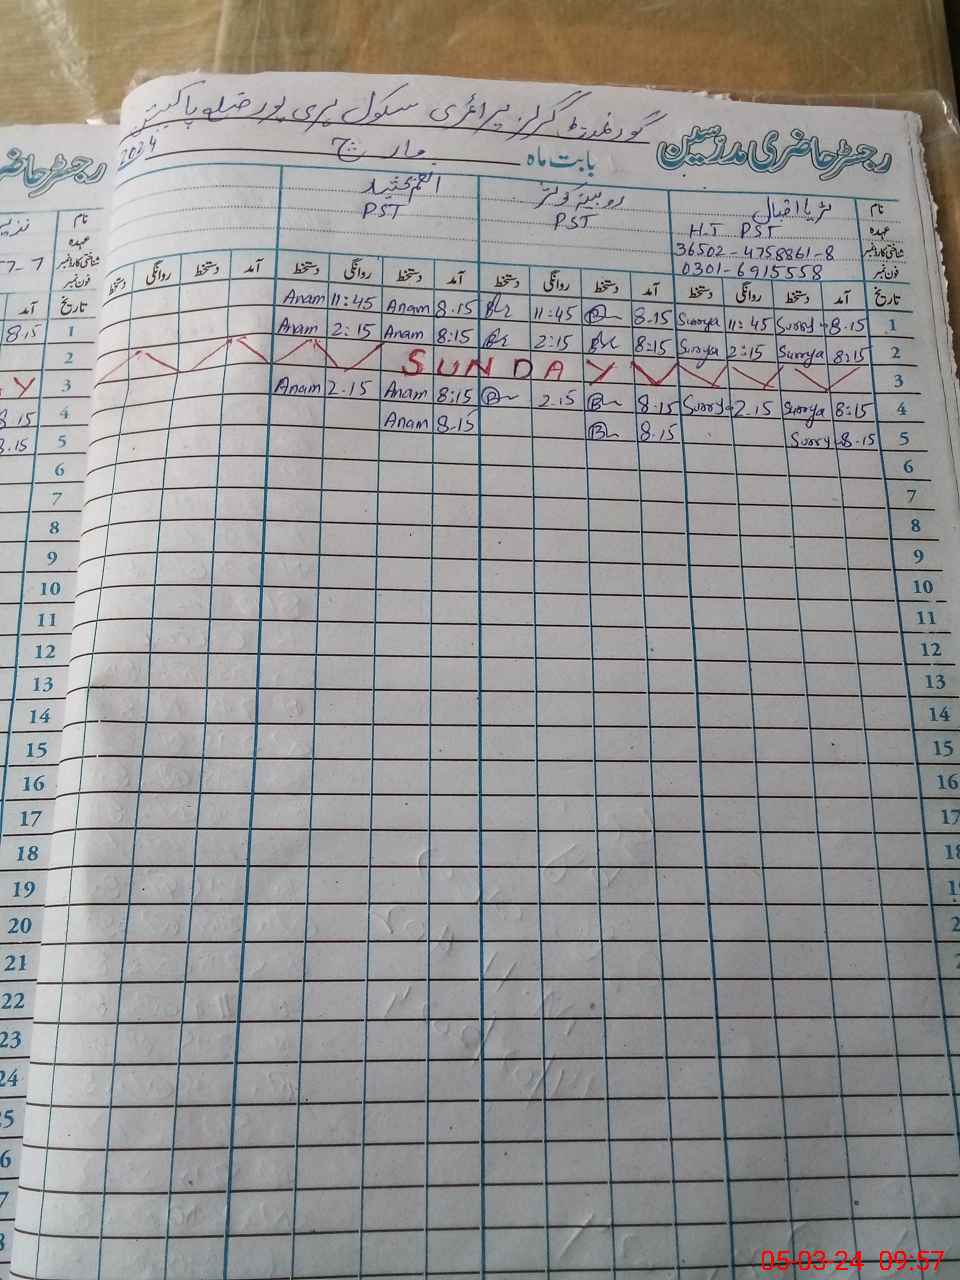 گورنمنٹ گرلز پرائمری سکول پری پور ضلع پاکپتن
رجسٹر حاضری مدرسین بابت ماہ مارچ 2024
رجسٹر حاضر
نام ثریا اقبال روبینہ کوثر
عہدہ H.T PST PST PST
شناختی کارڈ نمبر 36502-4758861-8
فون نمبر 0301-6915558
تاریخ آمد دستخط روانگی دستخط آمد دستخط روانگی دستخط آمد دستخط روانگی دستخط آمد دستخط روانگی دستخط
1 8.15 Surrya 11:45 Surrya 8.15 11:45 8.15 Anam 11:45 Anam
2 8:15 Surrya 2:15 Surrya 8:15 2:15 8:15 Anam 2:15 Anam
3 SUNDAY
4 8:15 Surrya 2.15 Surry 8.15 2.15 8:15 Anam 2.15 Anam
5 8.15 Surry 8.15 8.15 Anam
6
7
8
9
10
11
12
13
14
15
16
17
18
نام
عہدہ
شناختی کارڈ نمبر
فون نمبر
تاریخ آمد
1 8.15
2
3 Y
4 8.15
5 8.15
6
7
8
9
10
11
12
13
14
15
16
17
18
19
20
21
22
23
24
05-03-24 09:57